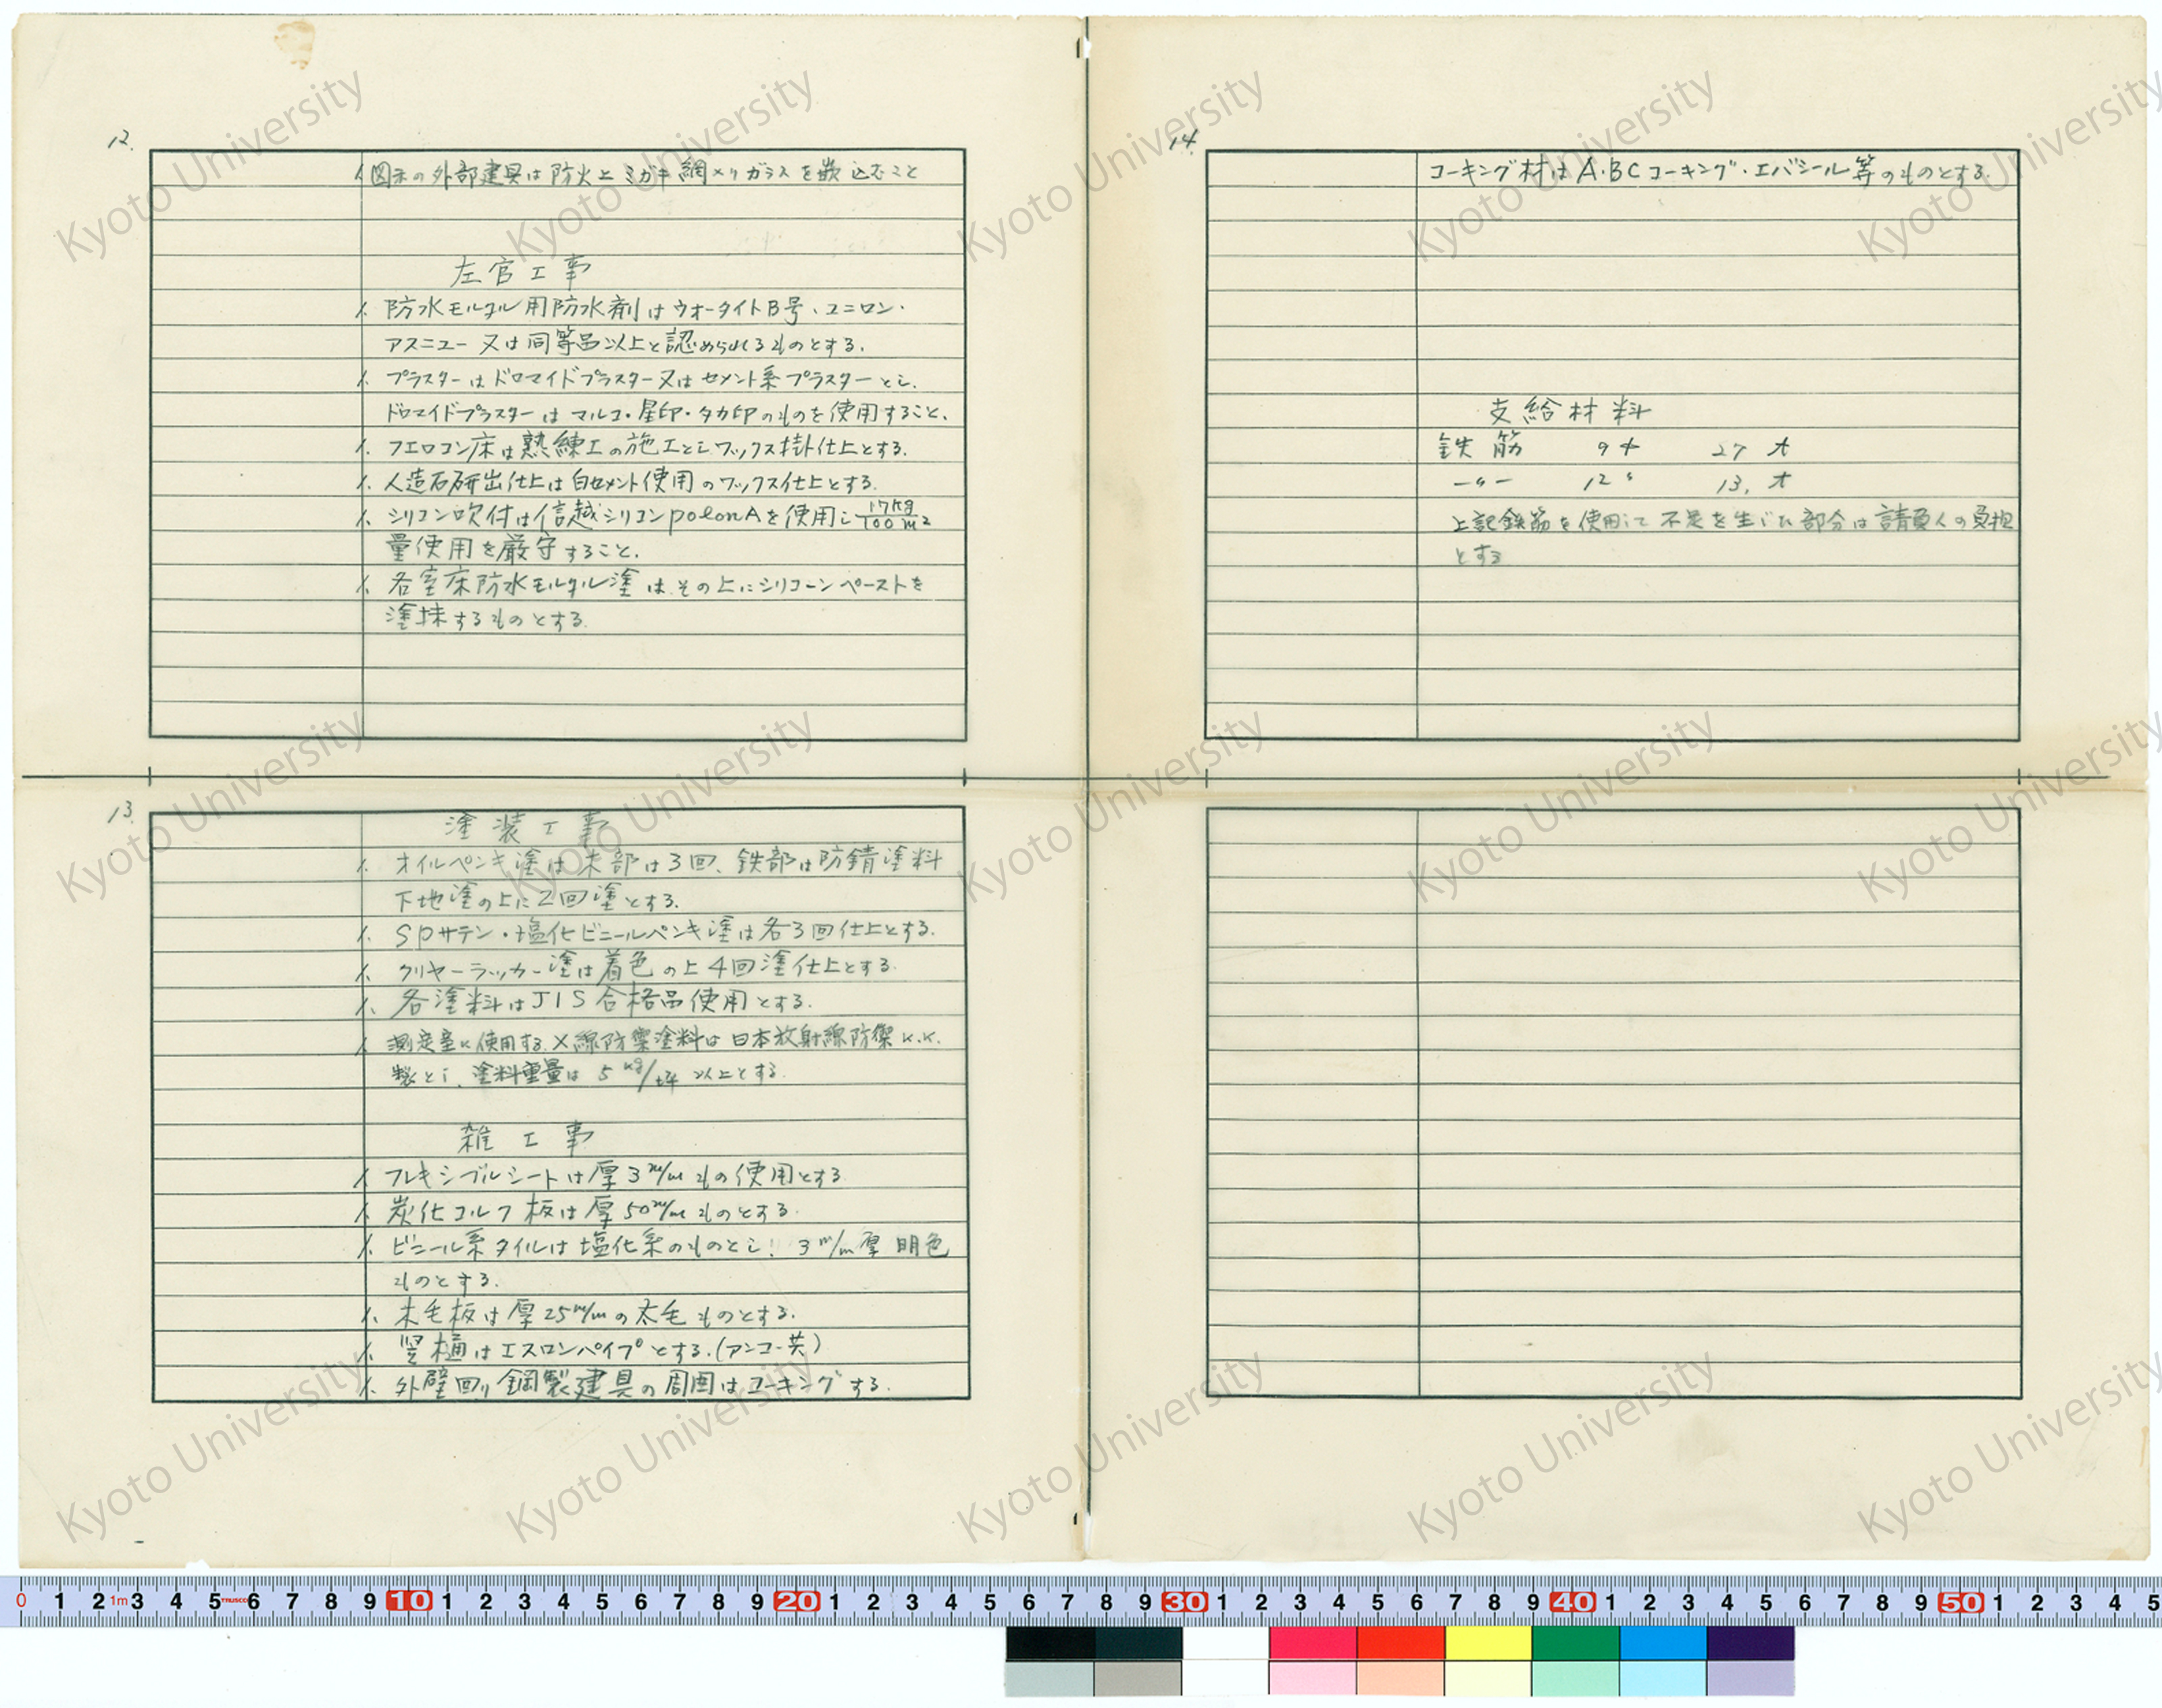 12.
1. 図示の外部建具は防火上ミガキ網メリガラスを嵌込むこと
左官工事
1. 防水モルタル用防水剤はウォータイトB号、ユニロン・
アスニュー又は同等品以上と認められるものとする.
1. プラスターはドロマイドプラスター又はセメント系プラスターとし、
ドロマイドプラスターはマルコ・星印・タカ印のものを使用すること.
1. フエロコン床は熟練工の施工としワックス掛仕上とする.
1. 人造石研出仕上は白セメント使用のワックス仕上とする.
1. シリコン吹付は信越シリコンpolonAを使用し17kg/100m2
量使用を厳守すること.
1. 各室床防水モルタル塗はその上にシリコーンペーストを
塗抹するものとする.
13.
塗装工事
1. オイルペンキ塗は木部は3回、鉄部は防錆塗料
下地塗の上に2回塗とする.
1. SPサテン・塩化ビニールペンキ塗は各3回仕上とする.
1. クリヤーラッカー塗は着色の上4回塗仕上とする.
1. 各塗料はJIS合格品使用とする.
1. 測定室に使用するX線防禦塗料は日本放射線防禦K.K.
製とし、塗料重量は5kg/坪以上とする.
雑工事
1. フレキシブルシートは厚3m/mもの使用とする
1. 炭化コルク板は厚50m/mものとする.
1. ビニール系タイルは塩化系のものとし、3m/m厚明色
ものとする.
1. 木毛板は厚25m/mの太毛ものとする.
1. 竪樋はエスロンパイプとする.(アンコー共)
1. 外壁回り鋼製建具の周囲はコーキングする.
14.
コーキング材はA.B.Cコーキング・エバシール等のものとする.
支給材料
鉄筋 9 27
〃 12〃 13.
上記鉄筋を使用して不足を生じた部分は請負人の負担
とする
Kyoto University
0 1 2 1m 3 4 5 TRUSCO 6 7 8 9 10 1 2 3 4 5 6 7 8 9 20 1 2 3 4 5 6 7 8 9 30 1 2 3 4 5 6 7 8 9 40 1 2 3 4 5 6 7 8 9 50 1 2 3 4 5